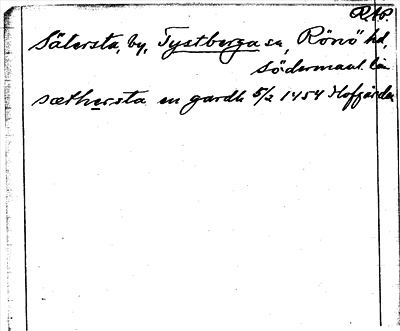 RAP.
Sätersta, by, Tystberga sn, Rönö hd,
Södermanl. län
sæthersta en gardh 5/2 1454 Hofgården